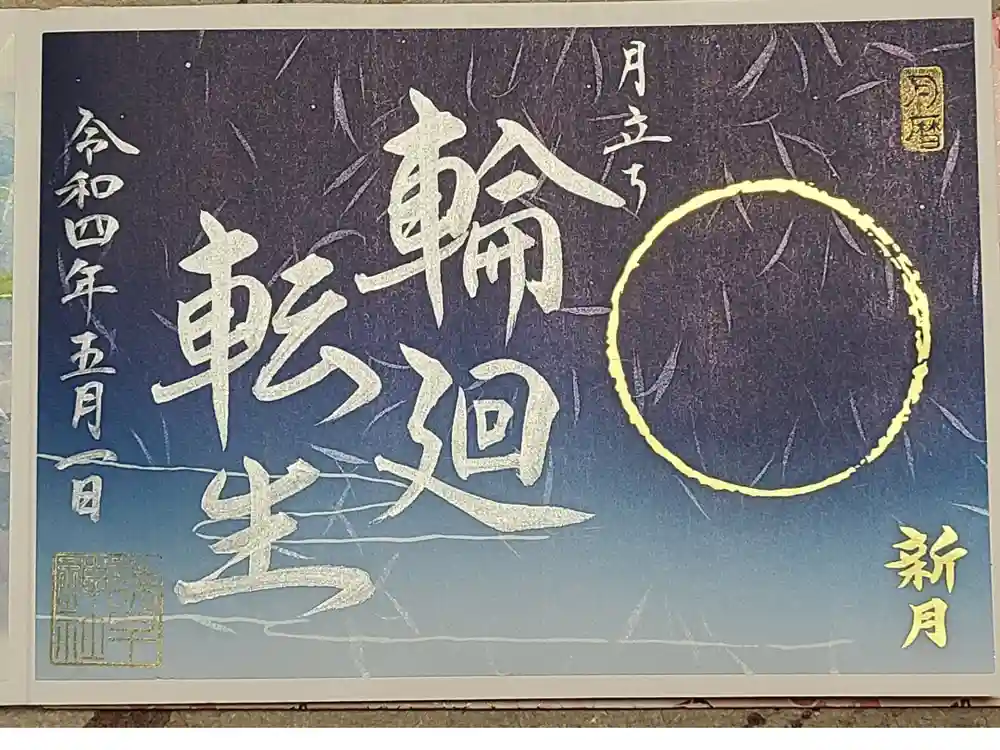 月暦
新月
月立ち
輪廻
転生
令和四年五月一日